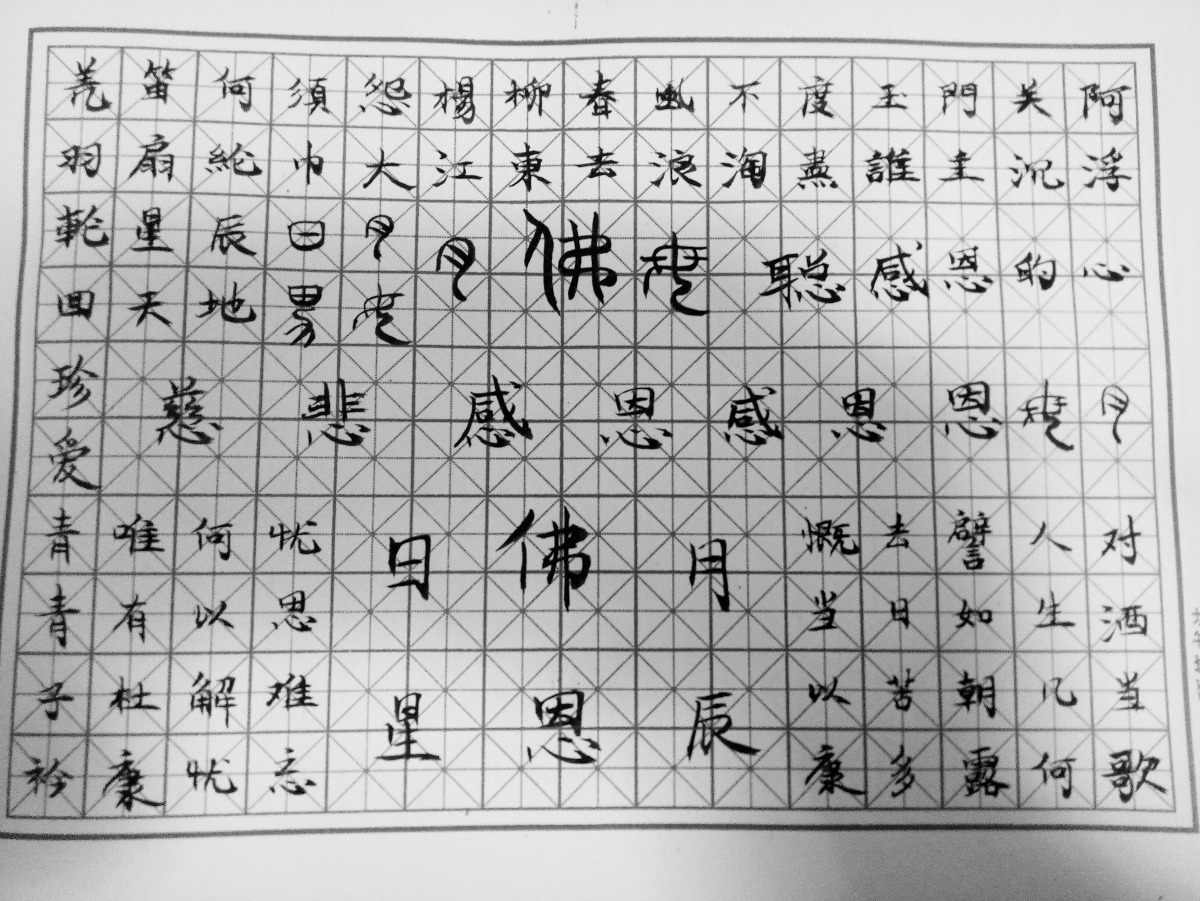 羌笛何須怨楊柳春風不度玉門关阿
羽扇綸巾大江東去浪淘盡誰主沉浮
輪回珍爱
星辰日月
天地
月佛
聪感恩的心
慈悲感恩感恩恩
月
日佛月
星恩辰
对酒当歌
人生几何
譬如朝露
去日苦多
慨当以康
忧思难忘
何以解忧
唯有杜康
青青子衿